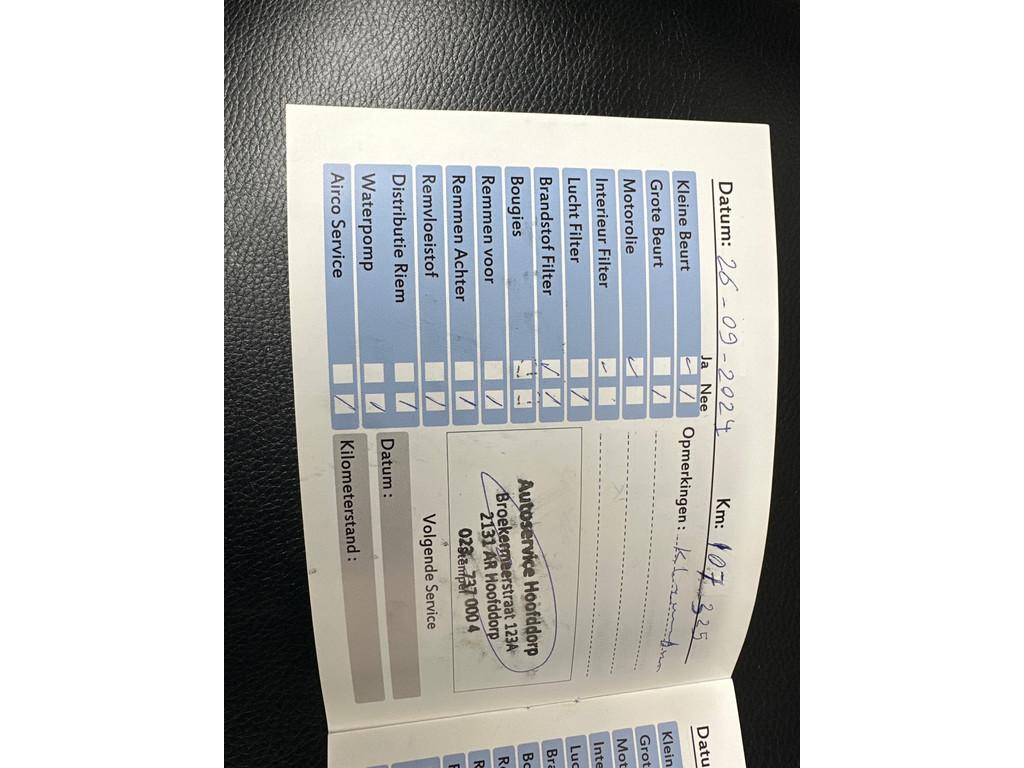 Datum: 26-09-2024 Km: 107 325
Ja Nee Opmerkingen:
Kleine Beurt
Grote Beurt
Motorolie
Interieur Filter
Lucht Filter
Brandstof Filter
Bougies
Remmen voor
Remmen Achter
Remvloeistof
Distributie Riem
Waterpomp
Airco Service
Autoservice Hoofddorp
Broekermeerstraat 123A
2131 AR Hoofddorp
023 - 737 000 4
Stempel
Volgende Service
Datum :
Kilometerstand :
Datu
Klein
Grot
Mot
Inte
Luc
Bra
Bo
R
R